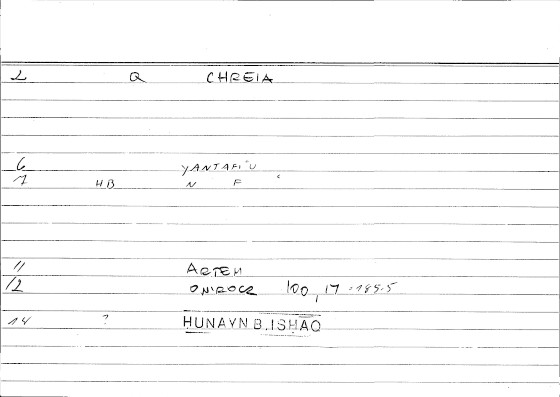 2 Q CHREIA
6 YANTAFI'U
7 HB N F ʿ
11 ARTEM
12 ONIROCR 100, 17 = 185.5
14 ? HUNAYN B. ISHAQ